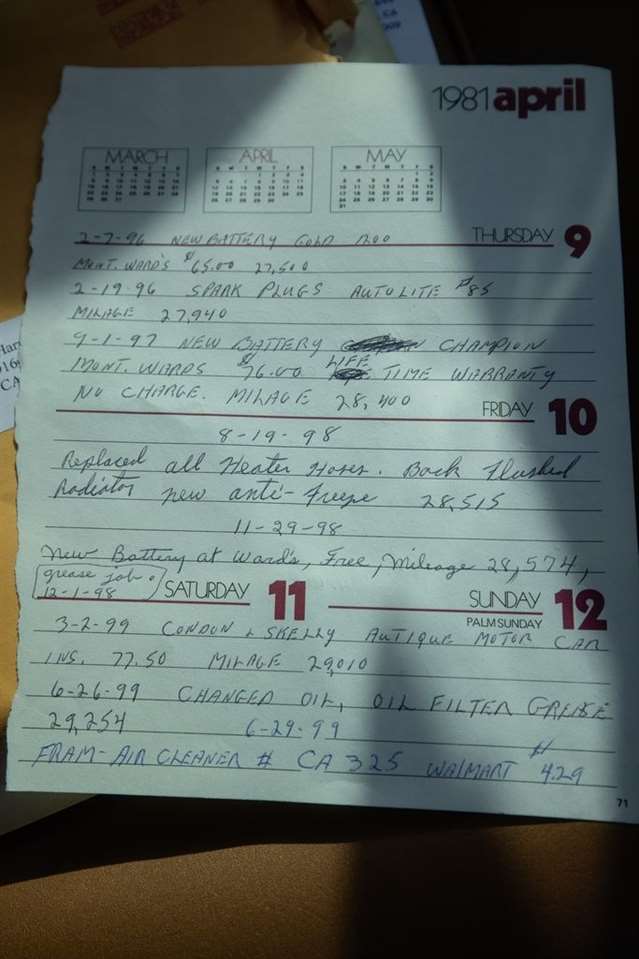 1981 april
MARCH APRIL MAY
2-7-96 NEW BATTERY GOLD 1200
THURSDAY 9
MONT. WARD'S $65.00 27,500
2-19-96 SPARK PLUGS AUTOLITE #85
MILAGE 27,940
9-1-97 NEW BATTERY CHAMPION
MONT. WARDS $76.00 LIFE TIME WARRANTY
NO CHARGE. MILAGE 28,400
FRIDAY 10
8-19-98
Replaced all Heater Hoses. Back flushed
Radiator new anti-freeze 28,515
11-29-98
New Battery at Ward's, Free, Mileage 28,574,
grease job.
12-1-98
SATURDAY 11
SUNDAY 12
PALM SUNDAY
3-2-99 CONDON & SKELLY AUTIQUE MOTOR CAR
INS. 77.50 MILAGE 29,010
6-26-99 CHANGED OIL, OIL FILTER GREASE
29,254 6-29-99
FRAM-AIR CLEANER # CA 325 WALMART $4.29
71